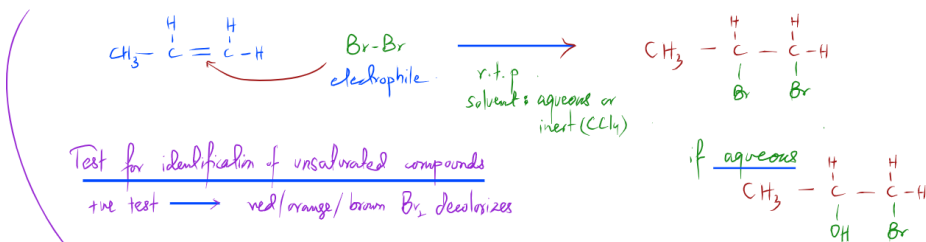 H H
CH3 – C = C – H
Br-Br
electrophile
r.t.p
solvent: aqueous or
inert (CCl4)
H H
CH3 – C – C – H
Br Br
Test for identification of unsaturated compounds
+ve test → red/orange/brown Br2 decolorizes
if aqueous
H H
CH3 – C – C – H
OH Br